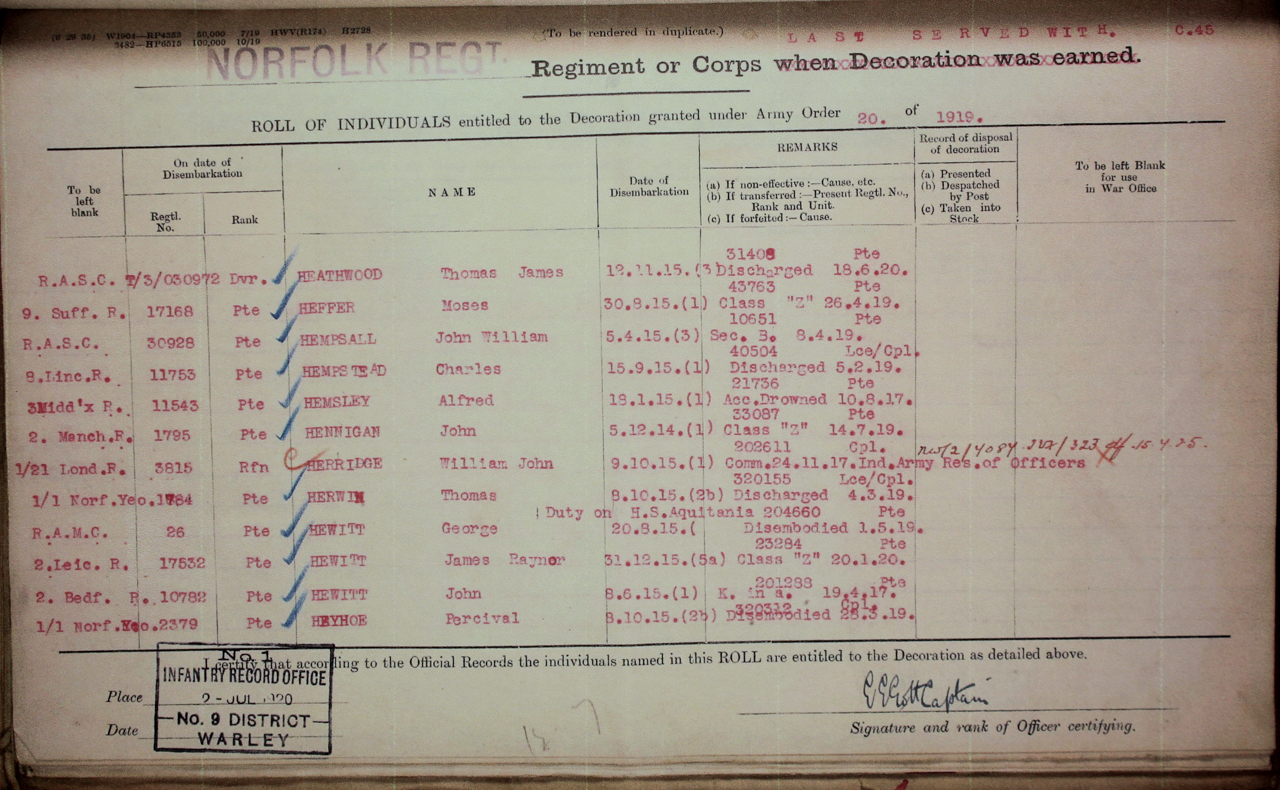 (6 29 35) W1904—RP4353 50,000 7/19 HWV(R174) H2728
3482—HP6515 100,000 10/19
(To be rendered in duplicate.)
LAST SERVED WITH. C.45
NORFOLK REGT. Regiment or Corps when Decoration was earned.
ROLL OF INDIVIDUALS entitled to the Decoration granted under Army Order 20. of 1919.
To be left blank
On date of Disembarkation
Regtl. No.
Rank
NAME
Date of Disembarkation
REMARKS
(a) If non-effective :—Cause, etc.
(b) If transferred :—Present Regtl. No., Rank and Unit.
(c) If forfeited :— Cause.
Record of disposal of decoration
(a) Presented
(b) Despatched by Post
(c) Taken into Stock
To be left Blank for use in War Office
31408 Pte
R.A.S.C. T/3/030972 Dvr. HEATHWOOD Thomas James 12.11.15.(3 Discharged 18.6.20.
43763 Pte
9. Suff. R. 17168 Pte HEFFER Moses 30.8.15.(1) Class "Z" 26.4.19.
10651 Pte
R.A.S.C. 30928 Pte HEMPSALL John William 5.4.15.(3) Sec. B. 8.4.19.
40504 Lce/Cpl.
8.Linc.R. 11753 Pte HEMPSTEAD Charles 15.9.15.(1) Discharged 5.2.19.
21736 Pte
3Midd'x R. 11543 Pte HEMSLEY Alfred 18.1.15.(1) Acc.Drowned 10.8.17.
33087 Pte
2. Manch.R. 1795 Pte HENNIGAN John 5.12.14.(1) Class "Z" 14.7.19.
202611 Cpl. NW/2/4084 15.4.25.
1/21 Lond.R. 3815 Rfn HERRIDGE William John 9.10.15.(1) Comm.24.11.17.Ind.Army Res.of Officers
320155 Lce/Cpl.
1/1 Norf.Yeo.1784 Pte HERWIN Thomas 8.10.15.(2b) Discharged 4.3.19.
Duty on H.S.Aquitania 204660 Pte
R.A.M.C. 26 Pte HEWITT George 20.8.15.( Disembodied 1.5.19.
23284 Pte
2.Leic. R. 17532 Pte HEWITT James Raynor 31.12.15.(5a) Class "Z" 20.1.20.
201288 Pte
2. Bedf. R. 10782 Pte HEWITT John 8.6.15.(1) K. in a. 19.4.17.
320312 Cpl.
1/1 Norf.Yeo.2379 Pte HEYHOE Percival 8.10.15.(2b) Disembodied 28.3.19.
I certify that according to the Official Records the individuals named in this ROLL are entitled to the Decoration as detailed above.
No. 1
INFANTRY RECORD OFFICE
2 - JUL 1920
No. 9 DISTRICT
WARLEY
Place
Date
Captain
Signature and rank of Officer certifying.